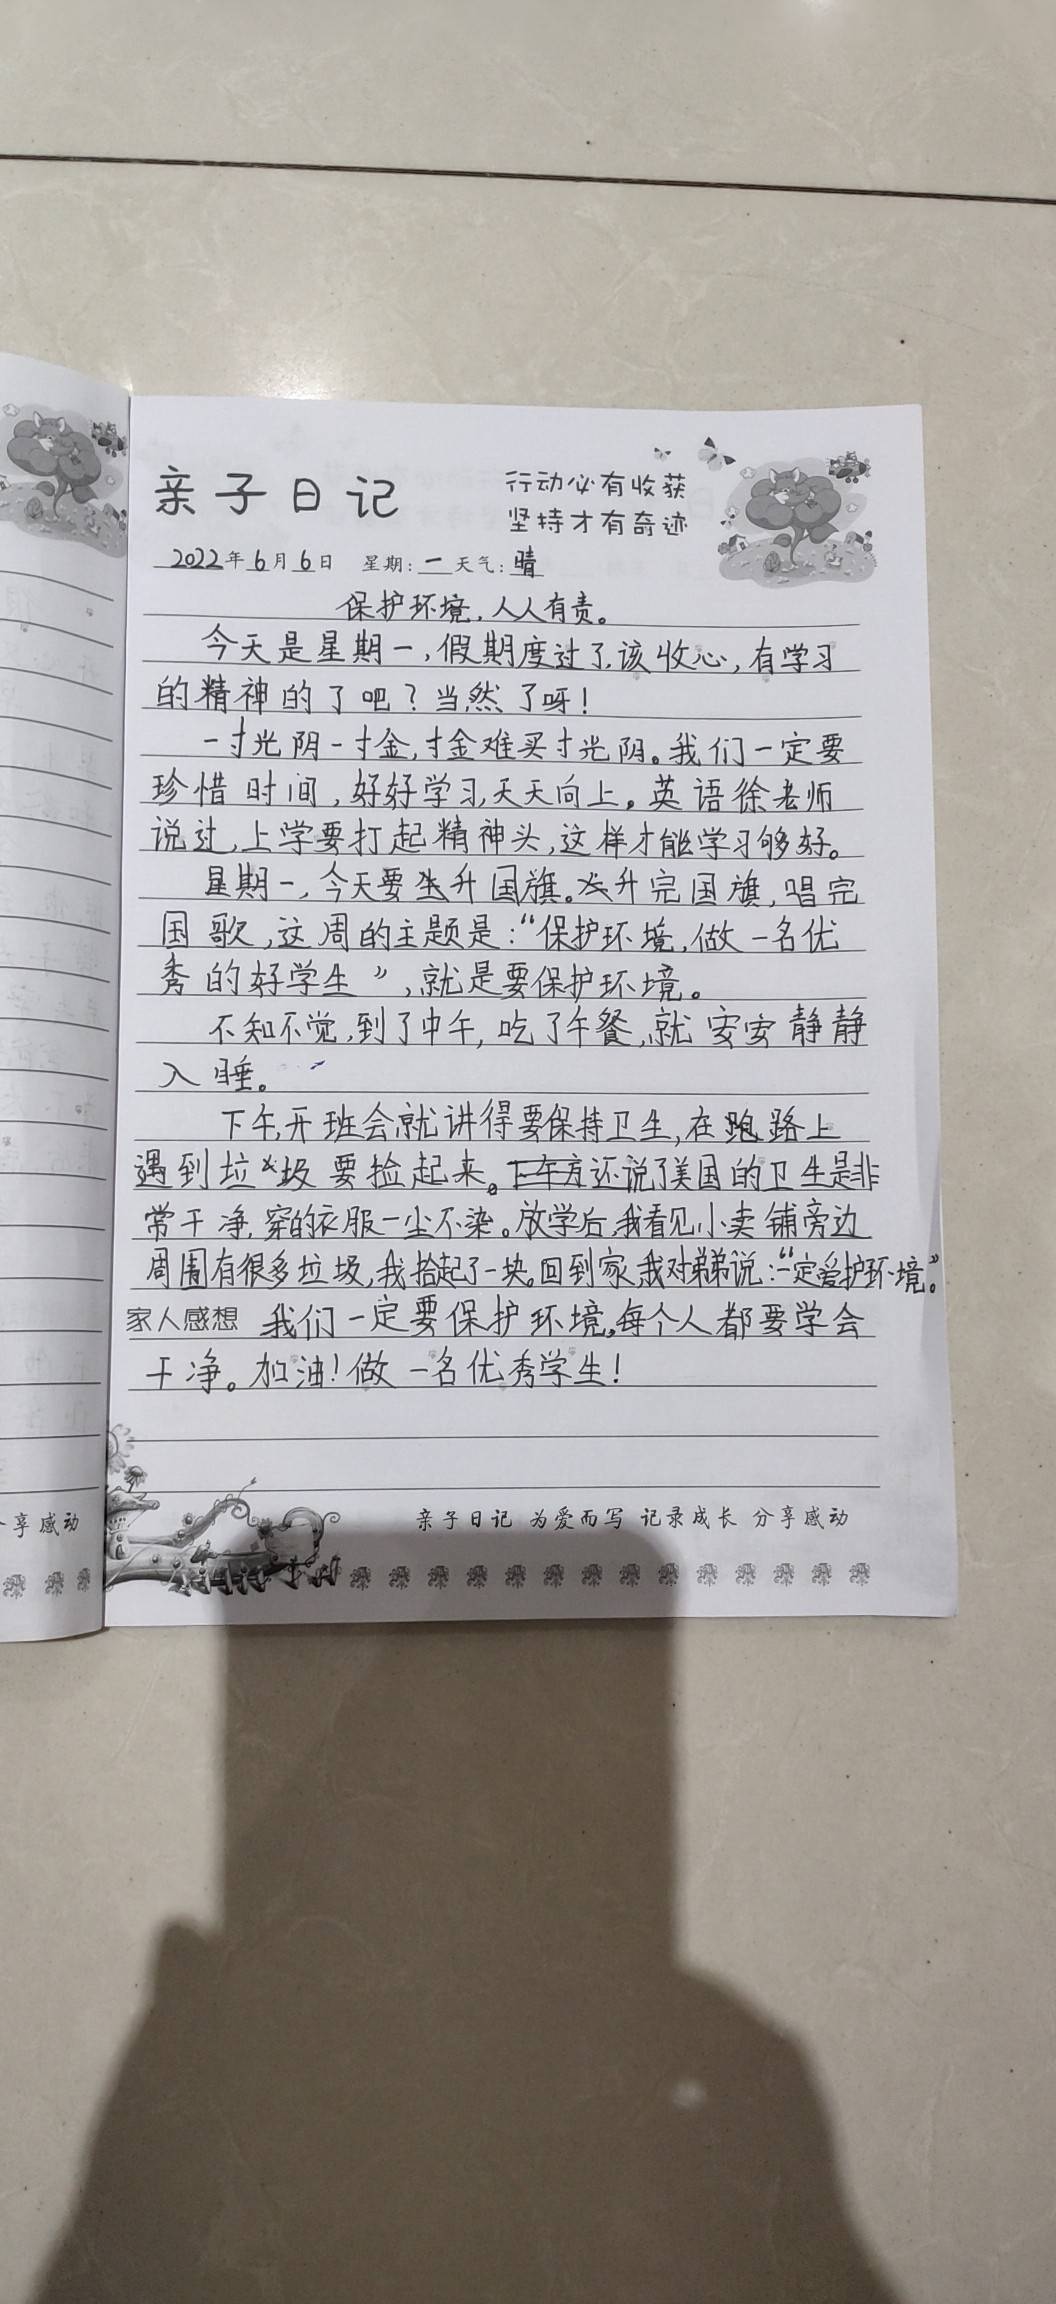 亲子日记
行动必有收获
坚持才有奇迹
2022年6月6日 星期:一 天气:晴
保护环境,人人有责。
今天是星期一,假期度过了,该收心,有学习
的精神的了吧?当然了呀!
一寸光阴一寸金,寸金难买寸光阴。我们一定要
珍惜时间,好好学习,天天向上。英语徐老师
说过,上学要打起精神头,这样才能学习够好。
星期一,今天要升国旗。升完国旗,唱完
国歌,这周的主题是:“保护环境,做一名优
秀的好学生”,就是要保护环境。
不知不觉,到了中午,吃了午餐,就安安静静
入睡。
下午,开班会就讲得要保持卫生,在跑路上
遇到垃圾要捡起来。还说了美国的卫生是非
常干净,穿的衣服一尘不染。放学后,我看见小卖铺旁边
周围有很多垃圾,我拾起了一块。回到家,我对弟弟说:“一定爱护环境。”
家人感想 我们一定要保护环境,每个人都要学会
干净。加油!做一名优秀学生!
亲子日记 为爱而写 记录成长 分享感动
分享感动